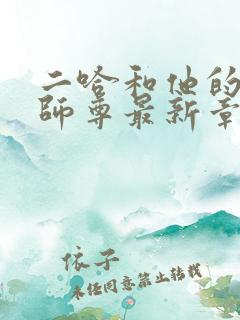 二哈和他的
師尊最新章
依子
未任同意禁止转载